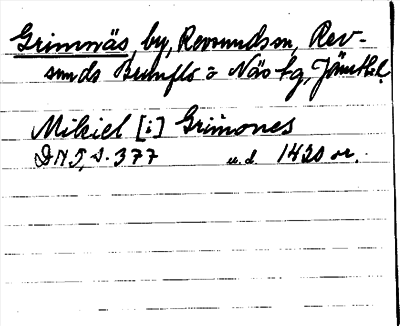 Grimnäs, by, Revsundsn, Rev-
sunds Brunflo o Näs tg, Jämtl.
Mikiel [i] Grimones
DN 5, s. 377 u.d. 1420 or.